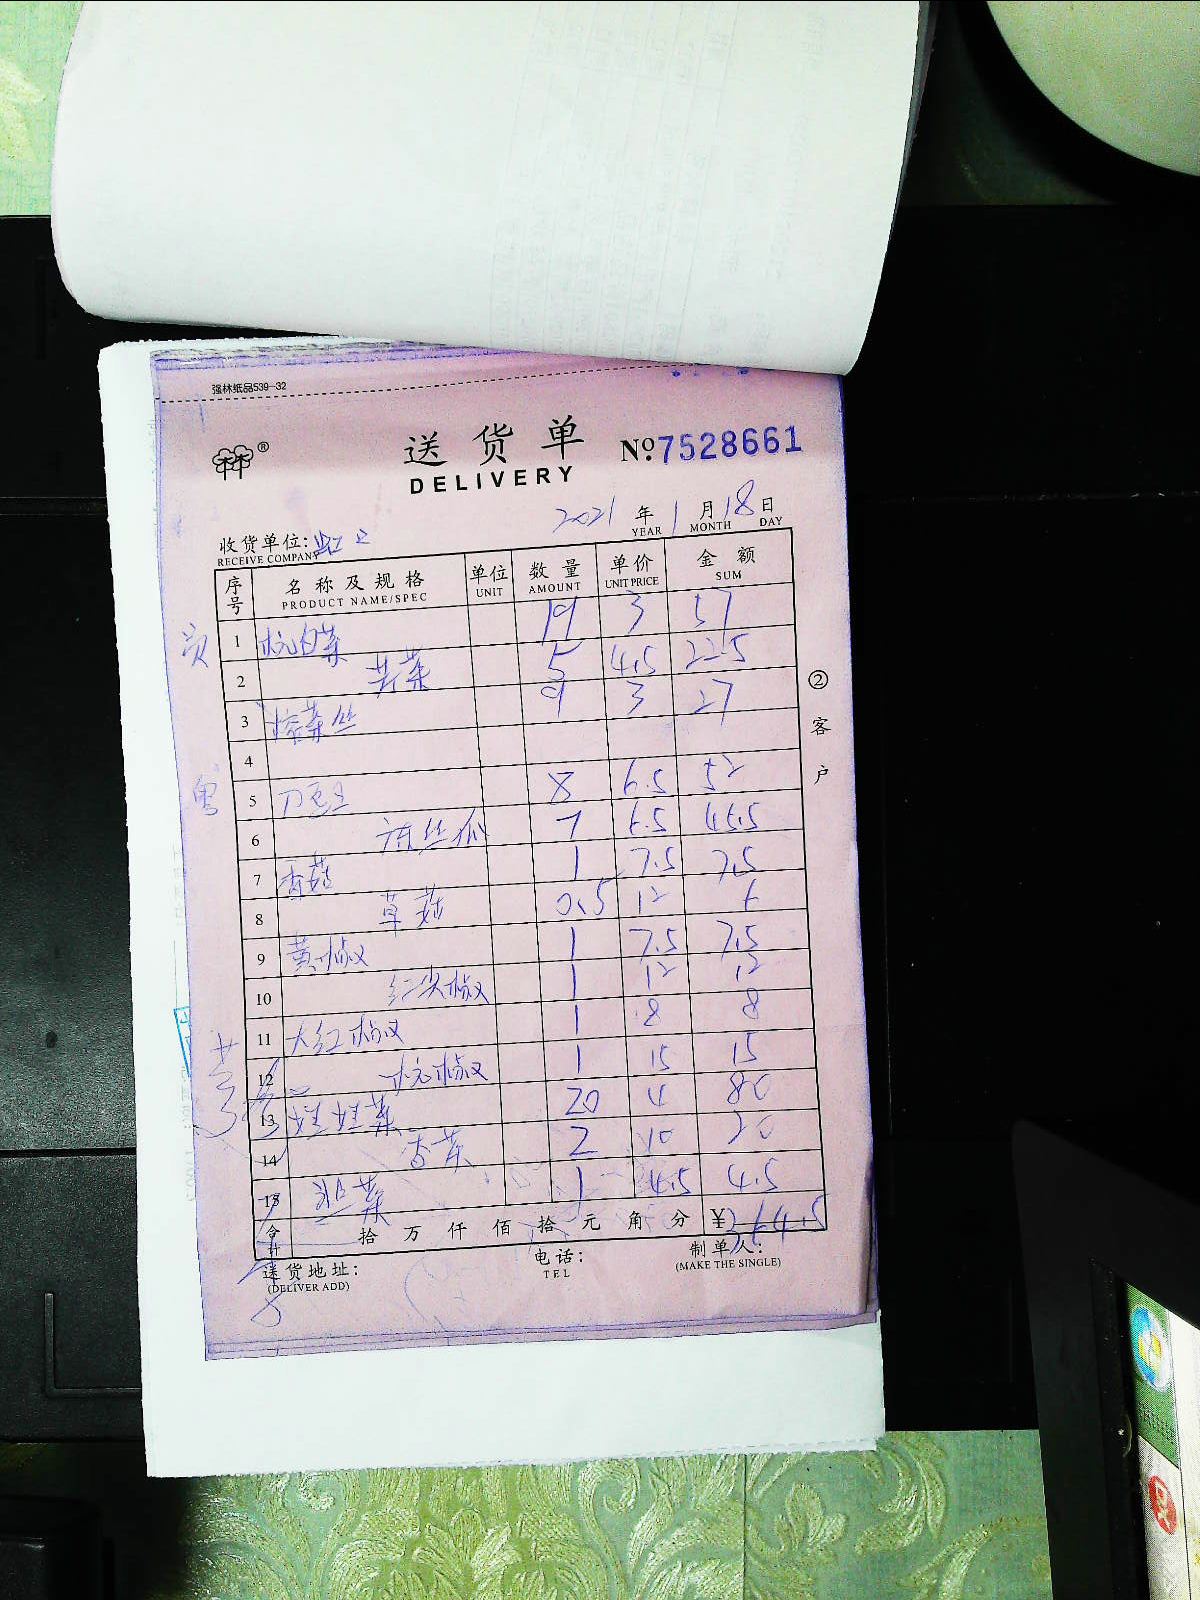 强林纸品539-32
送货单
DELIVERY
No.7528661
2021年1月18日
YEAR MONTH DAY
收货单位:虹口
RECEIVE COMPANY
序号 名称及规格 单位 数量 单价 金额
PRODUCT NAME/SPEC UNIT AMOUNT UNIT PRICE SUM
1 杭白菜 19 3 57
2 芹菜 5 4.5 22.5
3 榨菜丝 9 3 27
4
5 刀豆 8 6.5 52
6 冻丝瓜 7 6.5 45.5
7 香菇 1 7.5 7.5
8 草菇 0.5 12 6
9 黄椒 1 7.5 7.5
10 红尖椒 1 12 12
11 大红椒 1 8 8
12 杭椒 1 15 15
13 娃娃菜 20 4 80
14 香菜 2 10 20
15 菜 1 4.5 4.5
合计 拾万仟佰拾元角分 ¥
送货地址:
(DELIVER ADD)
电话:
TEL
制单人:
(MAKE THE SINGLE)
②客户